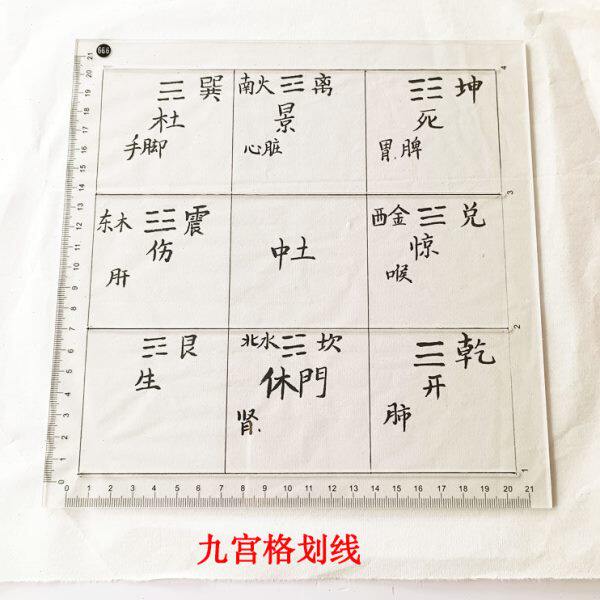 666
☴ 巽
杜
手脚
南火 ☲ 离
景
心脏
☷ 坤
死
胃.脾
东木 ☳ 震
伤
肝
中土
西金 ☱ 兑
惊
喉
☶ 艮
生
北水 ☵ 坎
休門
肾.
☰ 乾
开
肺
4
3
2
1
21
20
19
18
17
16
15
14
13
12
11
10
9
8
7
6
5
4
3
2
1
0
0 1 2 3 4 5 6 7 8 9 10 11 12 13 14 15 16 17 18 19 20 21
九宫格划线